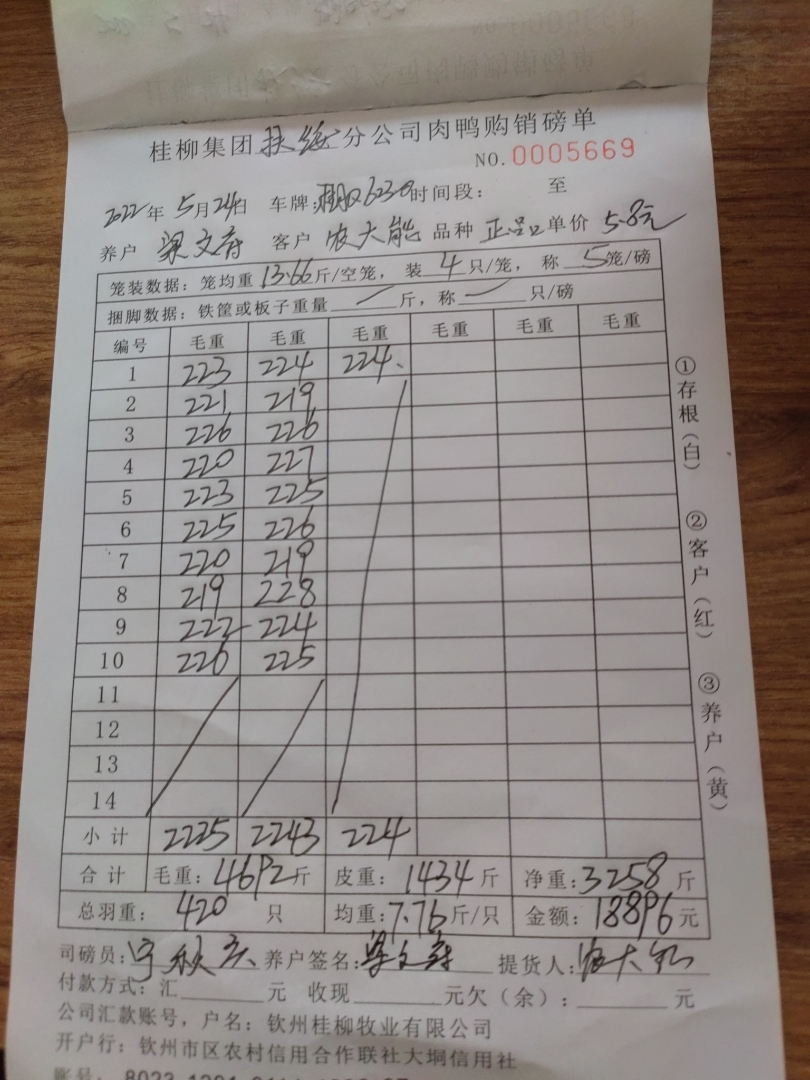 桂柳集团扶绥分公司肉鸭购销磅单
NO.0005669
2022年5月24日 车牌: 6230 时间段: 至
养户 梁文 客户 农大能 品种 正品 单价 5.8元
笼装数据: 笼均重 13.66 斤/空笼, 装 4 只/笼, 称 5 笼/磅
捆脚数据: 铁筐或板子重量 / 斤, 称 / 只/磅
编号 毛重 毛重 毛重 毛重 毛重 毛重
1 223 224 224.
2 221 219
3 226 226
4 220 227
5 223 225
6 225 226
7 220 219
8 219 228
9 222 224
10 226 225
11
12
13
14
小计 2225 2243 224
合计 毛重: 4692斤 皮重: 1434 斤 净重: 3258 斤
总羽重: 420 只 均重: 7.76 斤/只 金额: 18896 元
司磅员: 养户签名: 梁文 提货人: 农大能
付款方式: 汇 元 收现 元欠(余): 元
公司汇款账号, 户名: 钦州桂柳牧业有限公司
开户行: 钦州市区农村信用合作联社大垌信用社
账号:
①存根(白)
②客户(红)
③养户(黄)